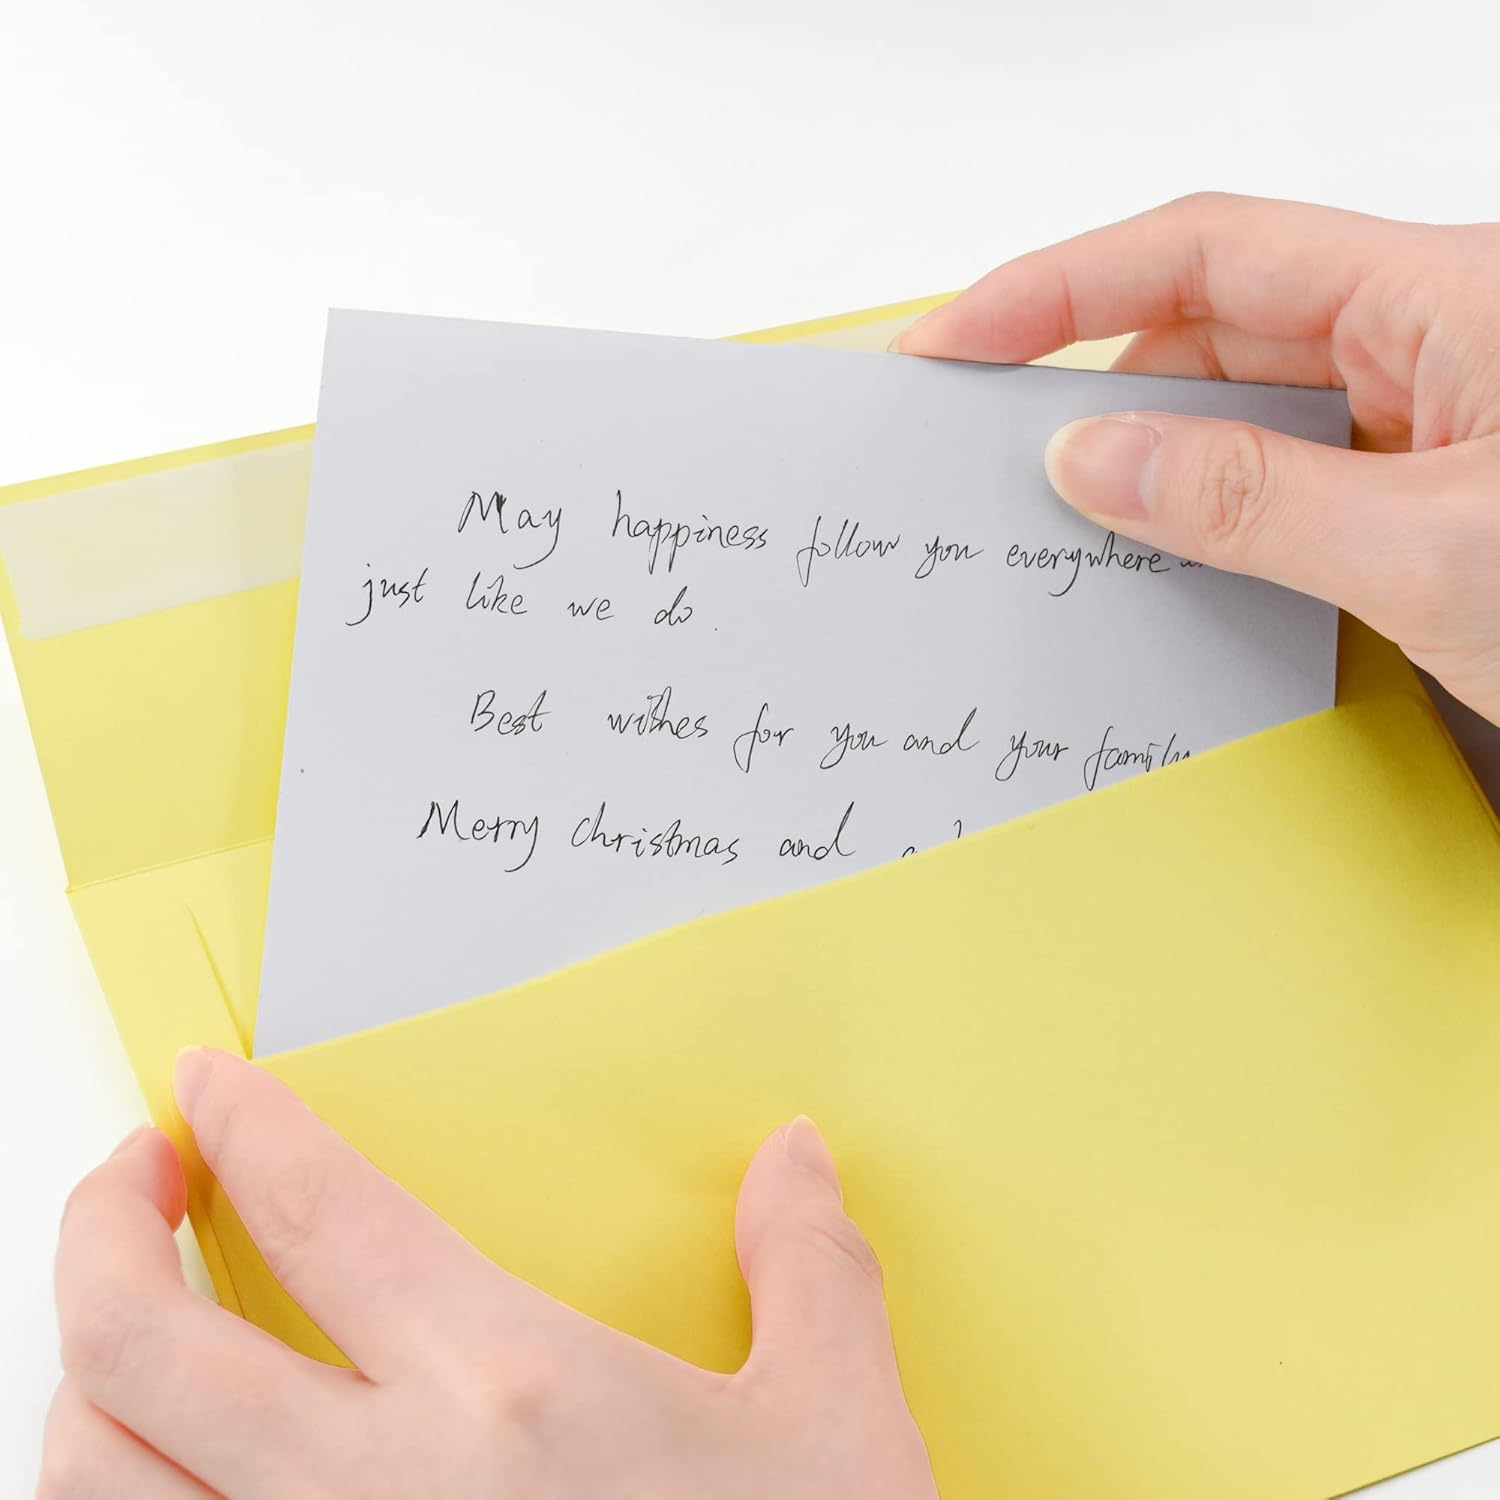 May happiness follow you everywhere
just like we do.
Best wishes for you and your family
Merry christmas and